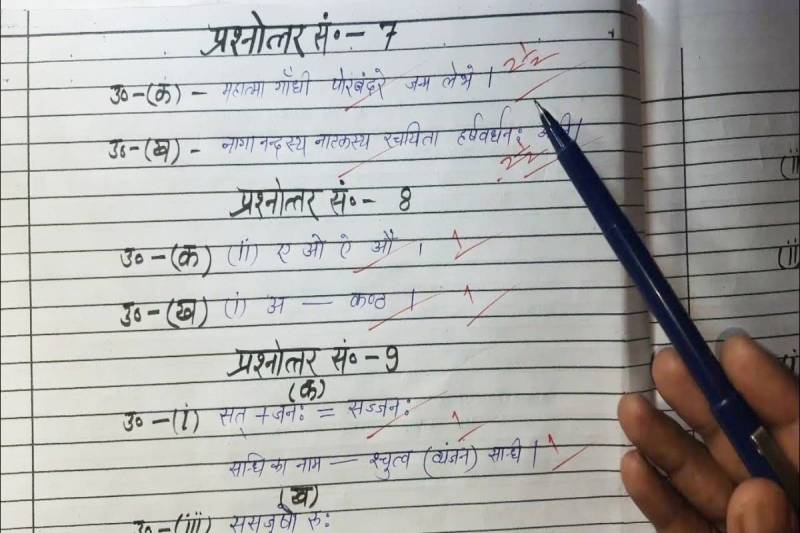 प्रश्नोत्तर सं०- 7
उ०-(क) - महात्मा गाँधी पोरबंदरे जन्म लेभे ।
उ०-(ख) - नागानन्दस्य नाटकस्य रचयिता हर्षवर्धनः
प्रश्नोत्तर सं०- 8
उ०-(क) (ii) ए ओ ऐ औ ।
उ०-(ख) (i) अ — कण्ठ ।
प्रश्नोत्तर सं०-9
(क)
उ०-(i) सत् + जनः = सज्जनः
सन्धि का नाम — श्चुत्व (व्यंजन) सन्धि ।
(ख)
उ०-(iii) ससजुषो रुः
(ii
(ii